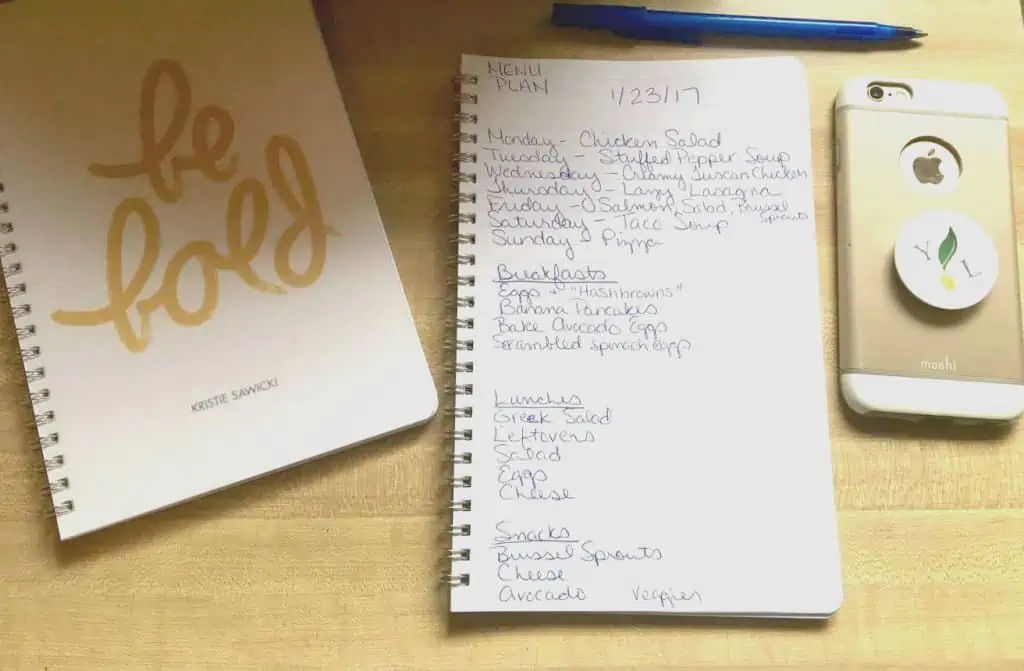 be
bold
KRISTIE SAWICKI
MENU
PLAN
1/23/17
Monday - Chicken Salad
Tuesday - Stuffed Pepper Soup
Wednesday - Creamy Tuscan Chicken
Thursday - Lazy Lasagna
Friday - Salmon, Salad, Brussel
Sprouts
Saturday - Taco Soup
Sunday - Pizza
Breakfasts
Eggs + "Hashbrowns"
Banana Pancakes
Bake Avocado Eggs
Scrambled spinach eggs
Lunches
Greek Salad
Leftovers
Salad
Eggs
Cheese
Snacks
Brussel Sprouts
Cheese
Avocado veggies
Y L
moshi